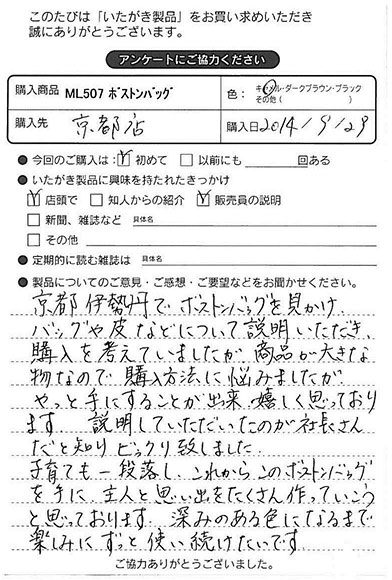 このたびは「いたがき製品」をお買い求めいただき
誠にありがとうございます。
アンケートにご協力ください
購入商品 ML507 ボストンバッグ 色： キャメル・ダークブラウン・ブラック
その他（ ）
購入先 京都店 購入日2014/9/29
● 今回のご購入は： ☑ 初めて □ 以前にも 回ある
● いたがき製品に興味を持たれたきっかけ
☑ 店頭で □ 知人からの紹介 ☑ 販売員の説明
□ 新聞、雑誌など 具体名
□ その他
● 定期的に読む雑誌は 具体名
● 製品についてのご意見・ご感想・ご要望などをお聞かせください。
京都伊勢丹でボストンバッグを見かけ、
バッグや皮などについて説明いただき、
購入を考えていましたが、商品が大きな
物なので購入方法に悩みましたが、
やっと手にすることが出来、嬉しく思っており
ます。説明していただいたのが社長さん
だと知りビックリ致しました。
子育ても一段落し、これからこのボストンバッグ
を手に、主人と思い出をたくさん作っていこう
と思っております。深みのある色になるまで
楽しみにずっと使い続けたいです。
ご協力ありがとうございました。